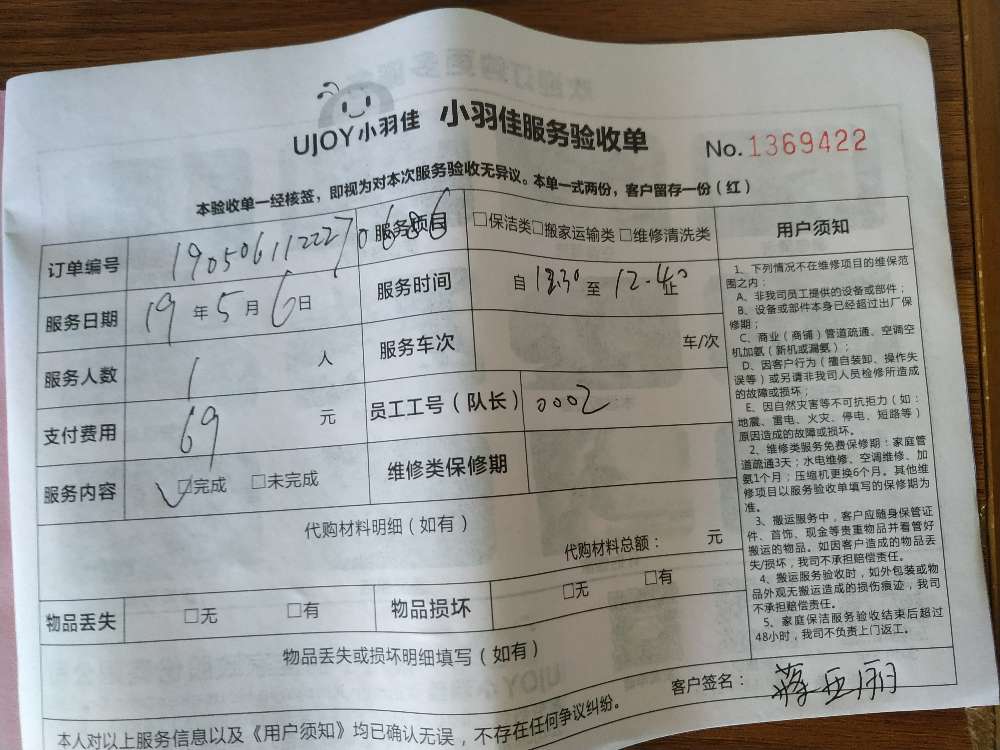 UJOY小羽佳 小羽佳服务验收单 No.1369422
本验收单一经核签，即视为对本次服务验收无异议。本单一式两份，客户留存一份（红）
订单编号 1905061122270686 服务项目 □保洁类□搬家运输类□维修清洗类
服务日期 19年5月6日 服务时间 自 12.30 至 12.40 止
服务人数 1 人 服务车次 车/次
支付费用 69 元 员工工号（队长） 0002
服务内容 ✓□完成 □未完成 维修类保修期
代购材料明细（如有）
代购材料总额： 元
物品丢失 □无 □有 物品损坏 □无 □有
物品丢失或损坏明细填写（如有）
客户签名： 蒋亚丽
本人对以上服务信息以及《用户须知》均已确认无误，不存在任何争议纠纷。
用户须知
1、下列情况不在维修项目的维保范
围之内：
A、非我司员工提供的设备或部件；
B、设备或部件本身已经超过出厂保
修期；
C、商业（商铺）管道疏通、空调空
机加氨（新机或漏氨）；
D、因客户行为（擅自装卸、操作失
误等）或另请非我司人员检修所造成
的故障或损坏；
E、因自然灾害等不可抗拒力（如：
地震、雷电、火灾、停电、短路等）
原因造成的故障或损坏。
2、维修类服务免费保修期：家庭管
道疏通3天；水电维修、空调维修、加
氨1个月；压缩机更换6个月。其他维
修项目以服务验收单填写的保修期为
准。
3、搬运服务中，客户应随身保管证
件、首饰、现金等贵重物品并看管好
搬运的物品。如因客户造成的物品丢
失/损坏，我司不承担赔偿责任。
4、搬运服务验收时，如外包装或物
品外观无搬运造成的损伤痕迹，我司
不承担赔偿责任。
5、家庭保洁服务验收结束后超过
48小时，我司不负责上门返工。